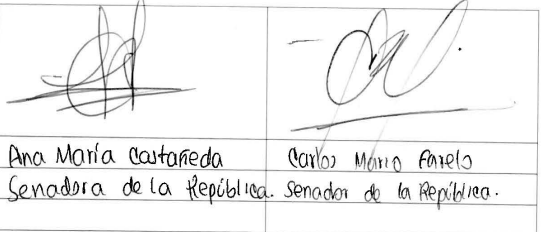 Ana María Castañeda
Senadora de la República.
Carlos Mario Farelo
Senador de la República.